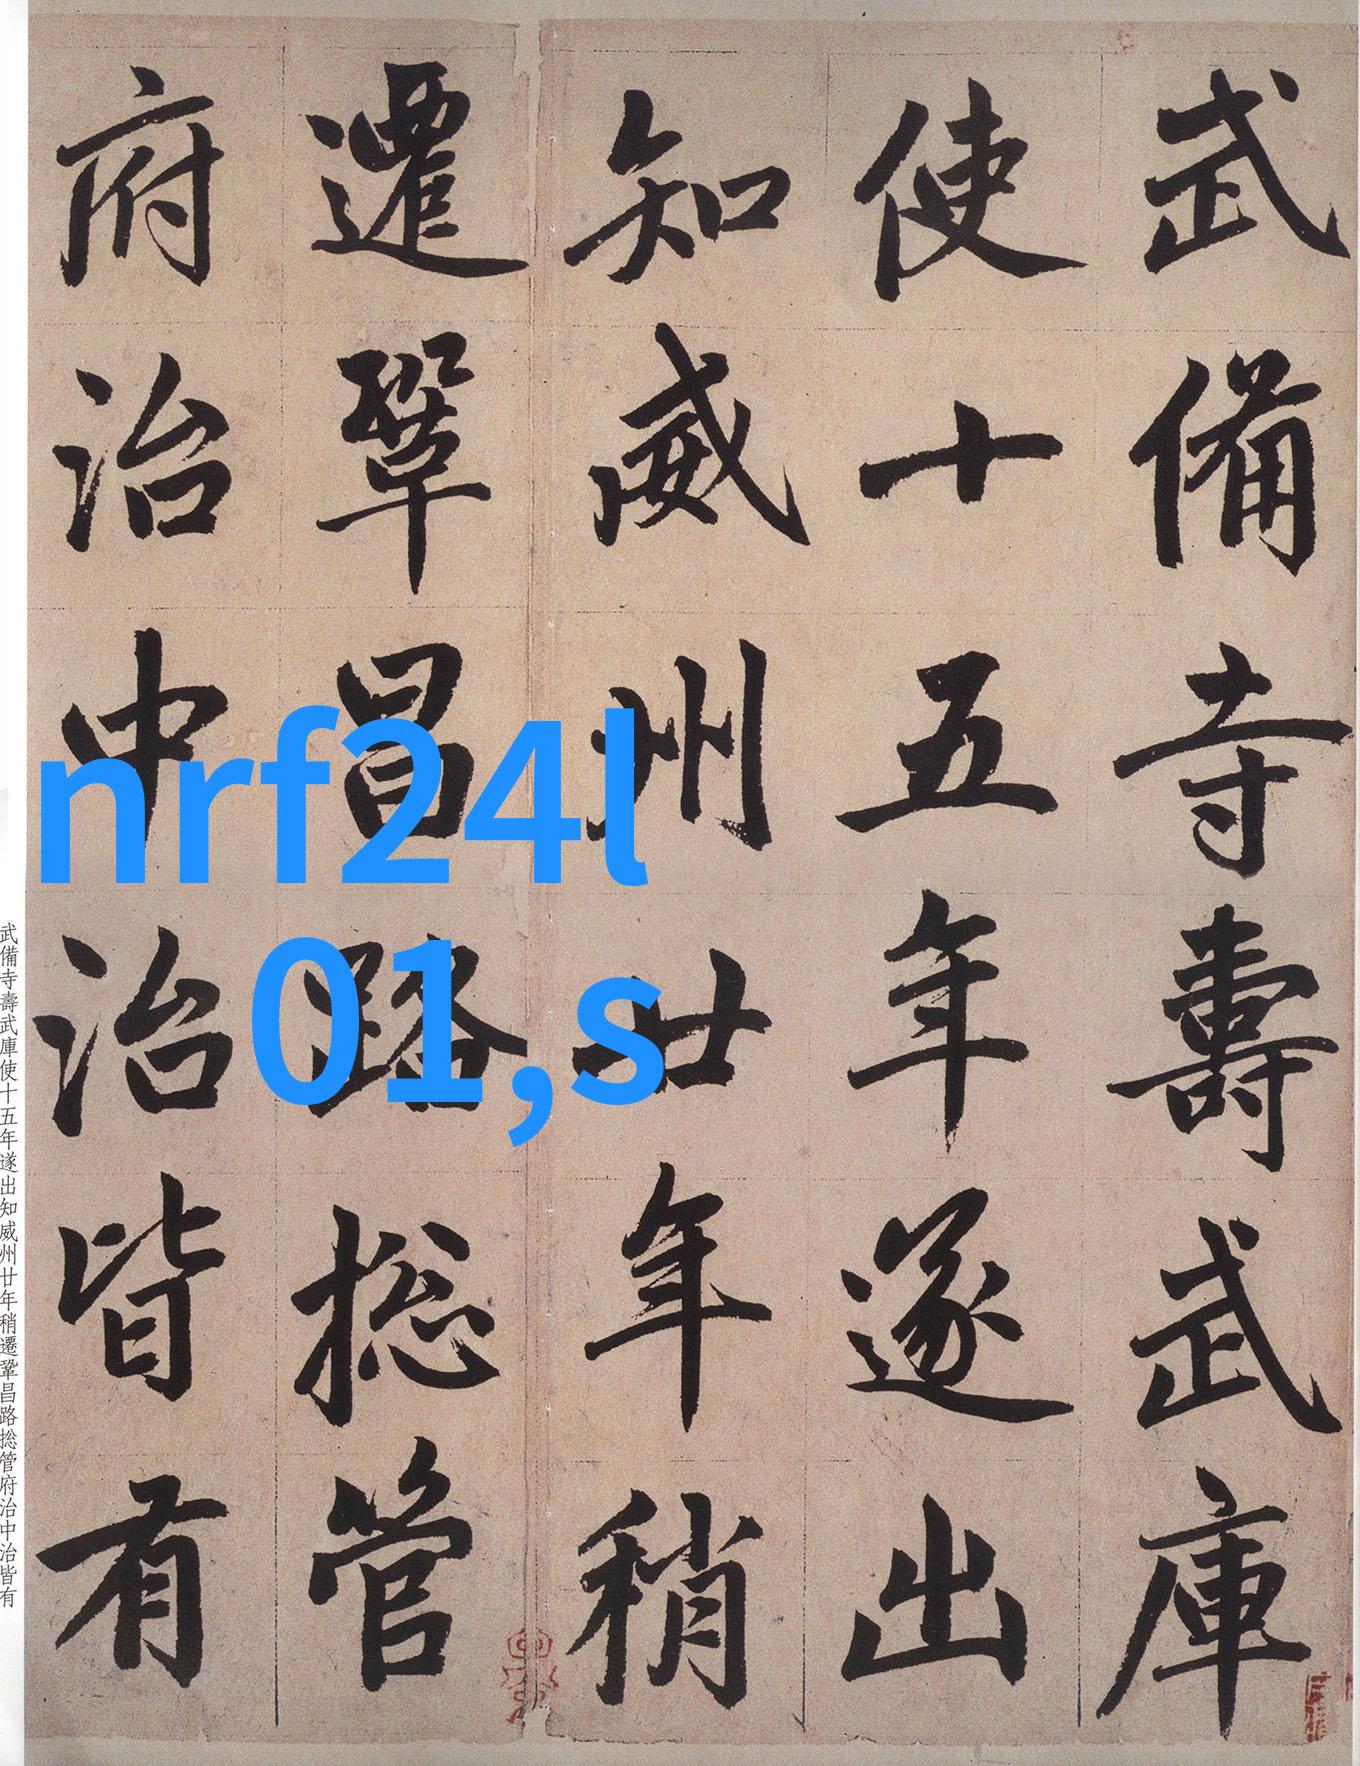 武備寺壽武庫
使十五年遂出
知威州廿年稍
遷鞏昌路捴管
府治中治皆有
nrf24l
01,s
武備寺壽武庫使十五年遂出知威州廿年稍遷鞏昌路捴管府治中治皆有